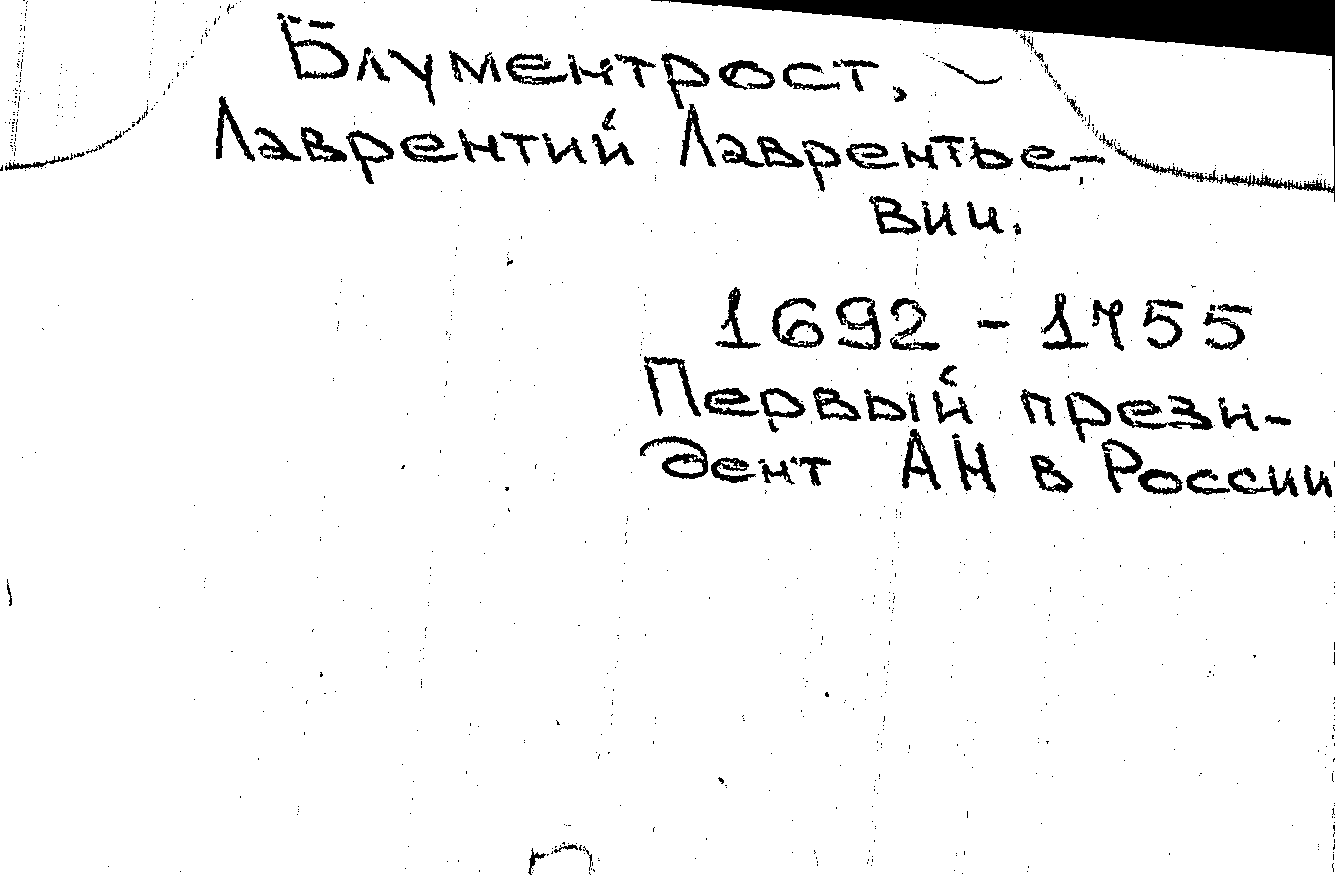 Блументрост,
Лаврентий Лаврентье-
вич.
1692 - 1755
Первый прези-
дент АН в России